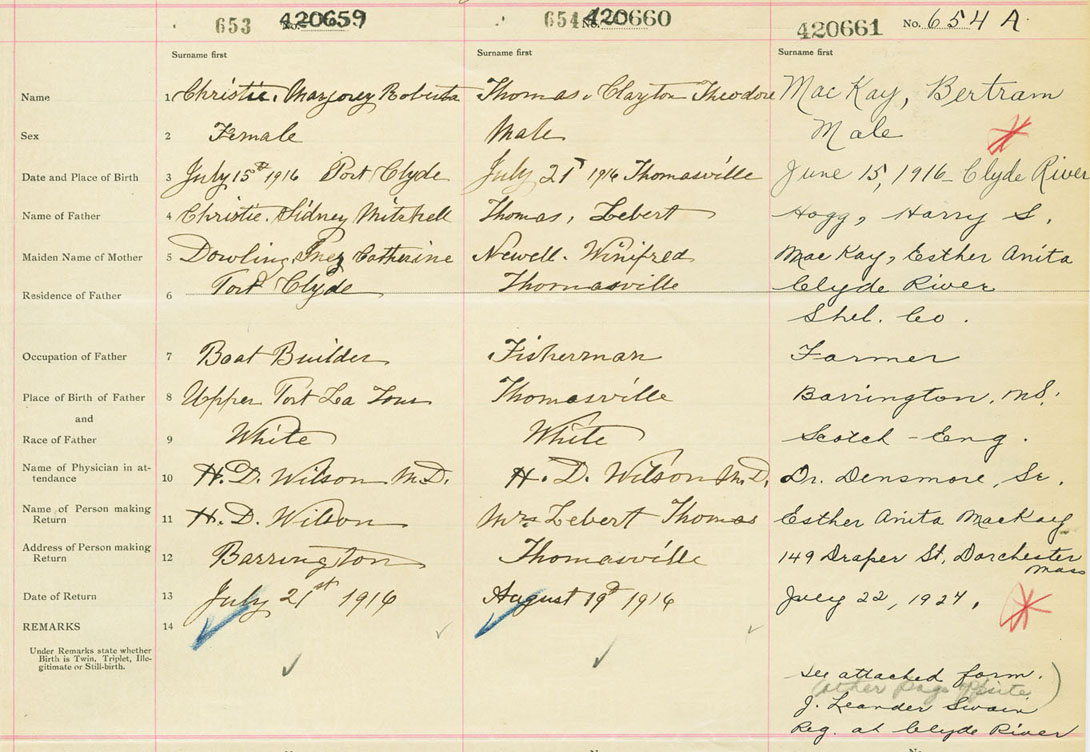 653 No. 420659 654 No. 420660 420661 No. 654 A
Surname first Surname first Surname first
Name 1 Christie, Marjorey Roberta Thomas, Clayton Theodore MacKay, Bertram
Sex 2 Female Male Male
Date and Place of Birth 3 July 15th 1916 Port Clyde July 21st 1916 Thomasville June 15, 1916 - Clyde River
Name of Father 4 Christie, Sidney Mitchell Thomas, Lebert Hogg, Harry S.
Maiden Name of Mother 5 Dowling, Inez Catherine Newell, Winifred MacKay, Esther Anita
Residence of Father 6 Port Clyde Thomasville Clyde River
Shel. Co.
Occupation of Father 7 Boat Builder Fisherman Farmer
Place of Birth of Father 8 Upper Port La Tour Thomasville Barrington, N.S.
and
Race of Father 9 White White Scotch - Eng.
Name of Physician in at-
tendance 10 H. D. Wilson M.D. H. D. Wilson M.D. Dr. Densmore, Sr.
Name of Person making
Return 11 H. D. Wilson Mrs Lebert Thomas Esther Anita MacKay
Address of Person making
Return 12 Barrington Thomasville 149 Draper St, Dorchester
Mass
Date of Return 13 July 21st 1916 August 19th 1916 July 22, 1927.
REMARKS 14
Under Remarks state whether
Birth is Twin, Triplet, Ille-
gitimate or Still-birth.
See attached form.
(other page opposite)
J. Leander Swain
Reg. at Clyde River
No. No. No.